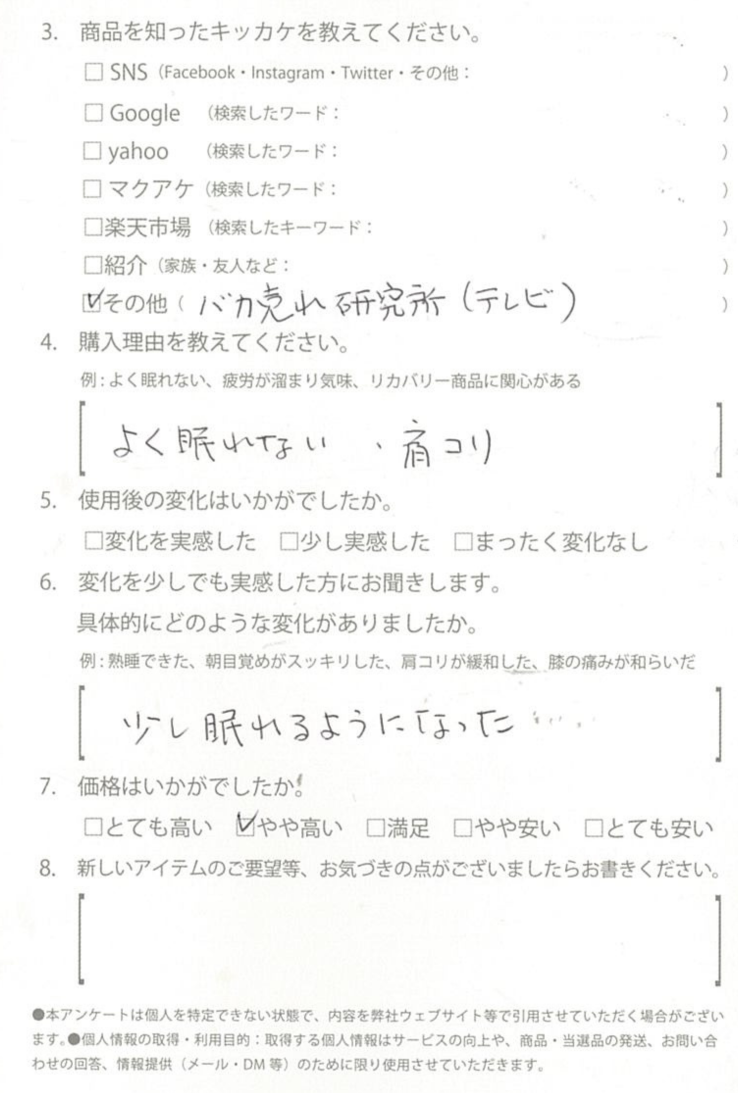 3. 商品を知ったキッカケを教えてください。
□ SNS（Facebook・Instagram・Twitter・その他： ）
□ Google （検索したワード： ）
□ yahoo （検索したワード： ）
□ マクアケ（検索したワード： ）
□楽天市場 （検索したキーワード： ）
□紹介（家族・友人など： ）
☑その他（ バカ売れ研究所（テレビ） ）
4. 購入理由を教えてください。
例：よく眠れない、疲労が溜まり気味、リカバリー商品に関心がある
よく眠れない 、肩コリ
5. 使用後の変化はいかがでしたか。
□変化を実感した □少し実感した □まったく変化なし
6. 変化を少しでも実感した方にお聞きします。
具体的にどのような変化がありましたか。
例：熟睡できた、朝目覚めがスッキリした、肩コリが緩和した、膝の痛みが和らいだ
少し眠れるようになった
7. 価格はいかがでしたか。
□とても高い ☑やや高い □満足 □やや安い □とても安い
8. 新しいアイテムのご要望等、お気づきの点がございましたらお書きください。
●本アンケートは個人を特定できない状態で、内容を弊社ウェブサイト等で引用させていただく場合がござい
ます。●個人情報の取得・利用目的：取得する個人情報はサービスの向上や、商品・当選品の発送、お問い合
わせの回答、情報提供（メール・DM 等）のために限り使用させていただきます。